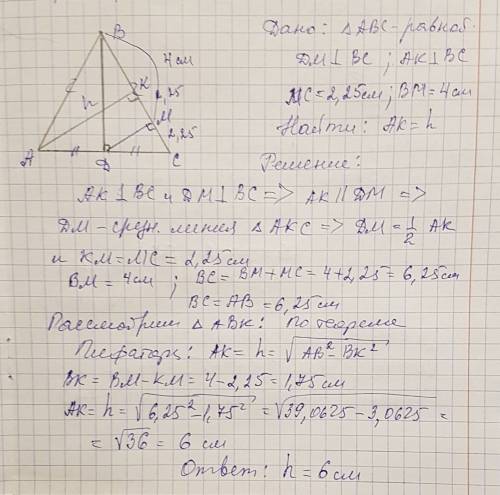 Дано: △ABC - равноб.
DM⊥BC ; AK⊥BC
MC=2,25см; BM=4см
Найти: AK=h
Решение:
B
4см
K
h
2,25
M
2,25
A
D
C
AK⊥BC и DM⊥BC => AK∥DM =>
DM - средн. линия △AKC => DM=1/2 AK
и KM=MC=2,25см
BM=4см ; BC=BM+MC=4+2,25=6,25см
BC=AB=6,25см
Рассмотрим △ABK: По теореме
Пифагора: AK=h=√AB²-BK²
BK=BM-KM=4-2,25=1,75см
AK=h=√6,25²-1,75²=√39,0625-3,0625=
=√36=6 см
Ответ: h=6см